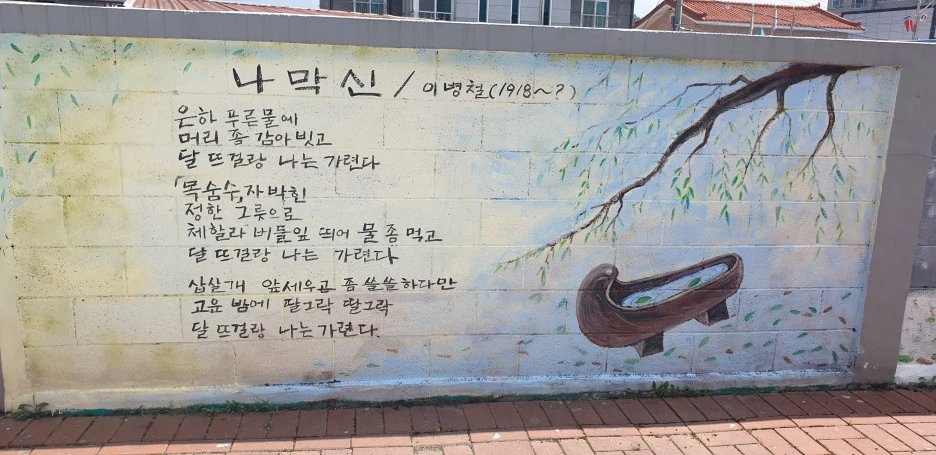 나막신 / 이병철(1918~?)
은하 푸른물에
머리 좀 감아빗고
달 뜨걸랑 나는 가련다
「목숨수」자 박힌
정한 그릇으로
체할라 버들잎 띄어 물 좀 먹고
달 뜨걸랑 나는 가련다
삽살개 앞세우고 좀 쓸쓸하다만
고운 밤에 딸그락 딸그락
달 뜨걸랑 나는 가련다.